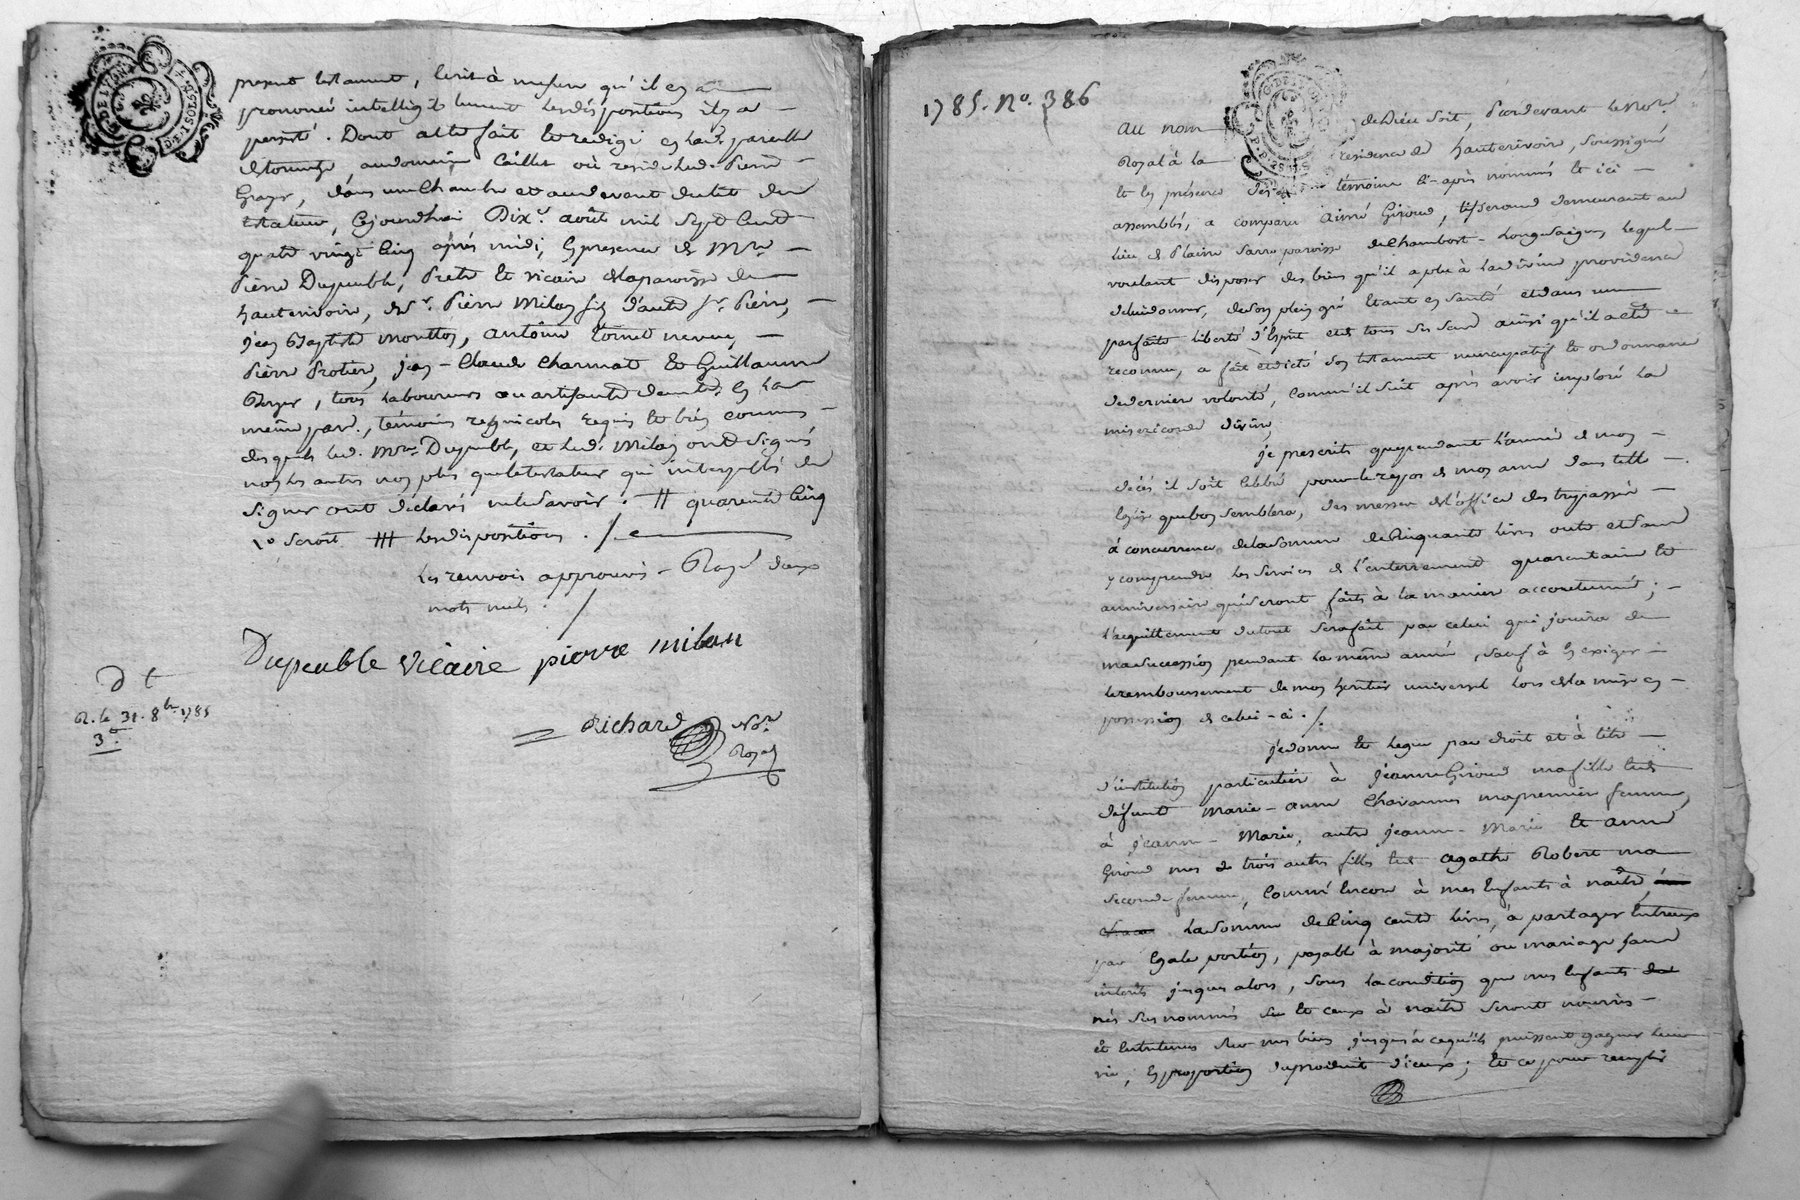 present testament, écrit à mesure qu'il en a
prononcé intelligiblement les dispositions il y a
persisté. Dont acte fait et redigé en lad. paroisse
au domaine Caillet où reside led. Pierre
Grayr, dans une Chambre et au devant du lit du
testateur, cejourdhui Dix e. août mil Sept Cent
quatre vingt Cinq après midi, en presence de Mre
Pierre Dupeuble, Pretre et vicaire de la paroisse de
hauterivoire, de Sr. Pierre Milan fils d'autre Sr. Pierre,
jean Baptiste Montton, antoine neveu,
Pierre Protière, jean-Claude Charmat et Guillaume
Berger, tous Laboureurs ou artisants demts. en lad.
même par., témoins regnicoles requis et bien connus
desquels led. Mre Dupeuble, et led. Milan ont Signés
non les autres non plus que le testateur qui interpellés de
Signer ont déclarés ne le Savoir. # quarente Cinq
Seroit ### les dispositions ./.
les renvois approuvés - Rayé deux
mots nuls ./
Dupeuble Vicaire pierre milan
Richard Nore
Royal
D t
R. le 31. 8bre 1785
3
1785. No. 386
au nom de Dieu Soit, Pardevant le Nore
Royal à la residence de hauterivoire, Soussigné
et en présence des témoins ci-après nommés et ici
assemblés, a comparu aimé Giroud, tisserand demeurant au
lieu de Plaine Sarre paroisse de Chambost-Longessaigne, lequel
voulant disposer des biens qu'il a plu à la divine providence
de lui donner, de Son plein gré Etant en Santé et dans une
parfaite liberté d'Esprit et de tous Ses Sens ainsi qu'il a été
reconnu, a fait et dicté Son testament nuncupatif et ordonnance
de dernière volonté, Comm'il Suit après avoir imploré la
misericorde divine,
je prescrits que pendant l'année de mon
décès il Soit Célébré pour le repos de mon ame dans telle
Eglise que bon Semblera, des messes de l'office des trépassés
à concurrence de la Somme de Cinquante livres outre et Sans
y comprendre les Services de l'enterrement quarantaine et
anniversaire qui Seront faits à la maniere accoutumée;
l'acquittement du tout Sera fait par celui qui jouira de
ma Succession pendant la même année, Sauf à En exiger
le remboursement de mon heritier universel lors de la mise en
possession de celui-ci ./.
je donne et legue par droit et à titre
d'institution particulière à jeanne Giroud ma fille et de
défunte Marie-anne Chavannes ma premiere femme,
à jeanne-Marie, autre jeanne-Marie et anne
Giroud mes trois autres filles et de agathe Robert ma
seconde femme, Comm'Encore à mes Enfants à naitre,
la Somme de Cinq cents livres, à partager Entreux
par Egale portion, payable à majorité ou mariage Sans
interêts jusques alors, Sous la condition que mes Enfants
nés Sus nommés et ceux à naitre Seront nourris
et Entretenus Sur mes biens jusques à cequ'ils puissent gagner leur
vie, En proportion du produit d'iceux; Et ce pour remplir